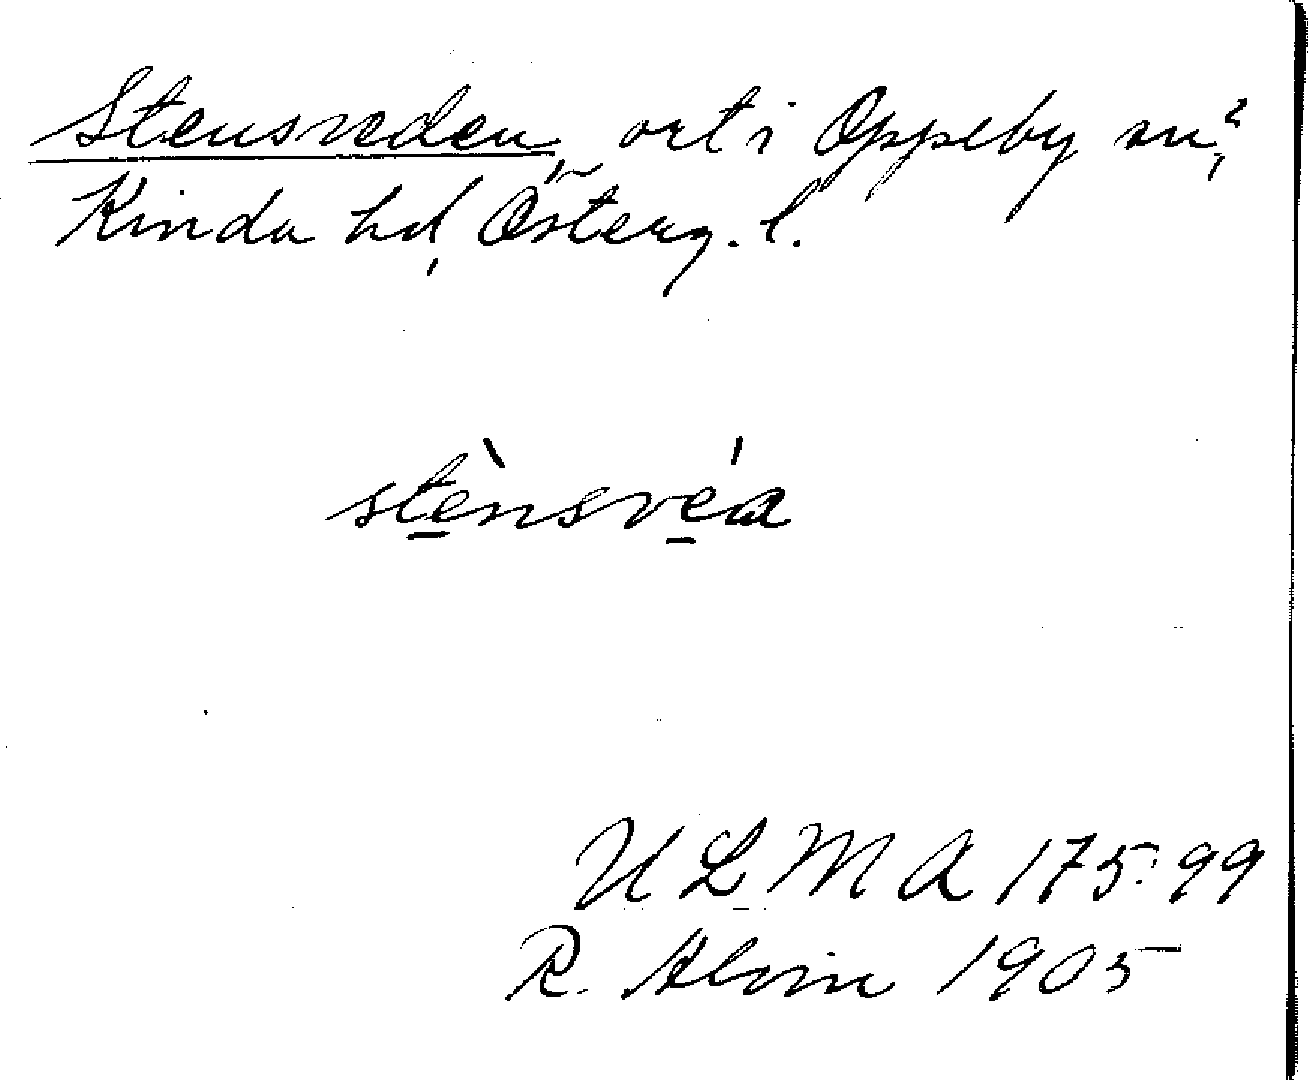 Stensveden, ort i Oppeby sn?,
Kinda hd, Österg. l.
stènsvéa
ULMA 175:99
R. Alvin 1905